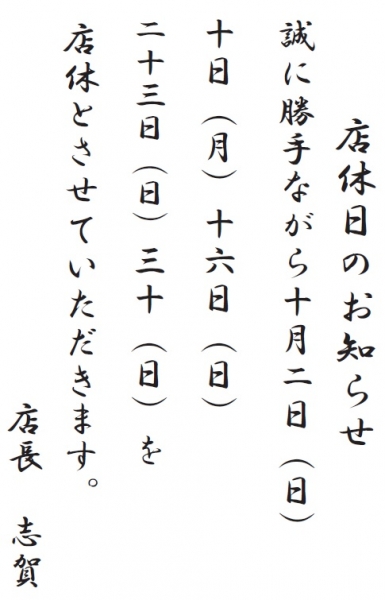 店休日のお知らせ
誠に勝手ながら十月二日（日）
十日（月）十六日（日）
二十三日（日）三十（日）を
店休とさせていただきます。
店長　志賀